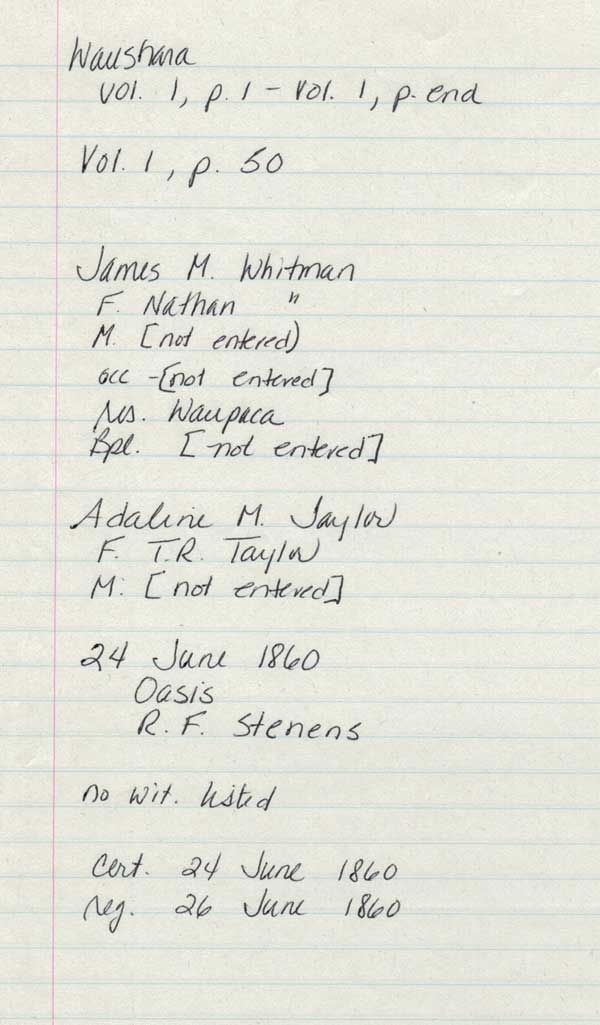 Waushara
Vol. 1, p. 1 - Vol. 1, p. end
Vol. 1, p. 50
James M. Whitman
F. Nathan "
M. [not entered)
occ - [not entered]
res. Waupaca
Bpl. [not entered]
Adaline M. Taylor
F. T.R. Taylor
M. [not entered]
24 June 1860
Oasis
R. F. Stenens
no wit. listed
Cert. 24 June 1860
reg. 26 June 1860